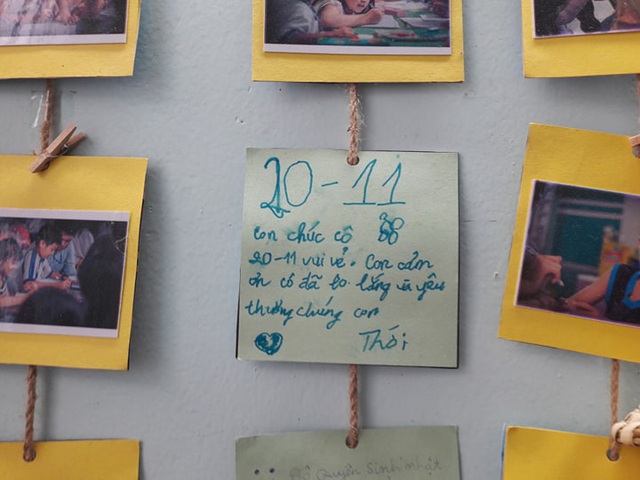 20-11
Con chúc cô
20-11 vui vẻ. Con cảm
ơn cô đã lo lắng và yêu
thương chúng con
Thới
Quyên Sinh nhật